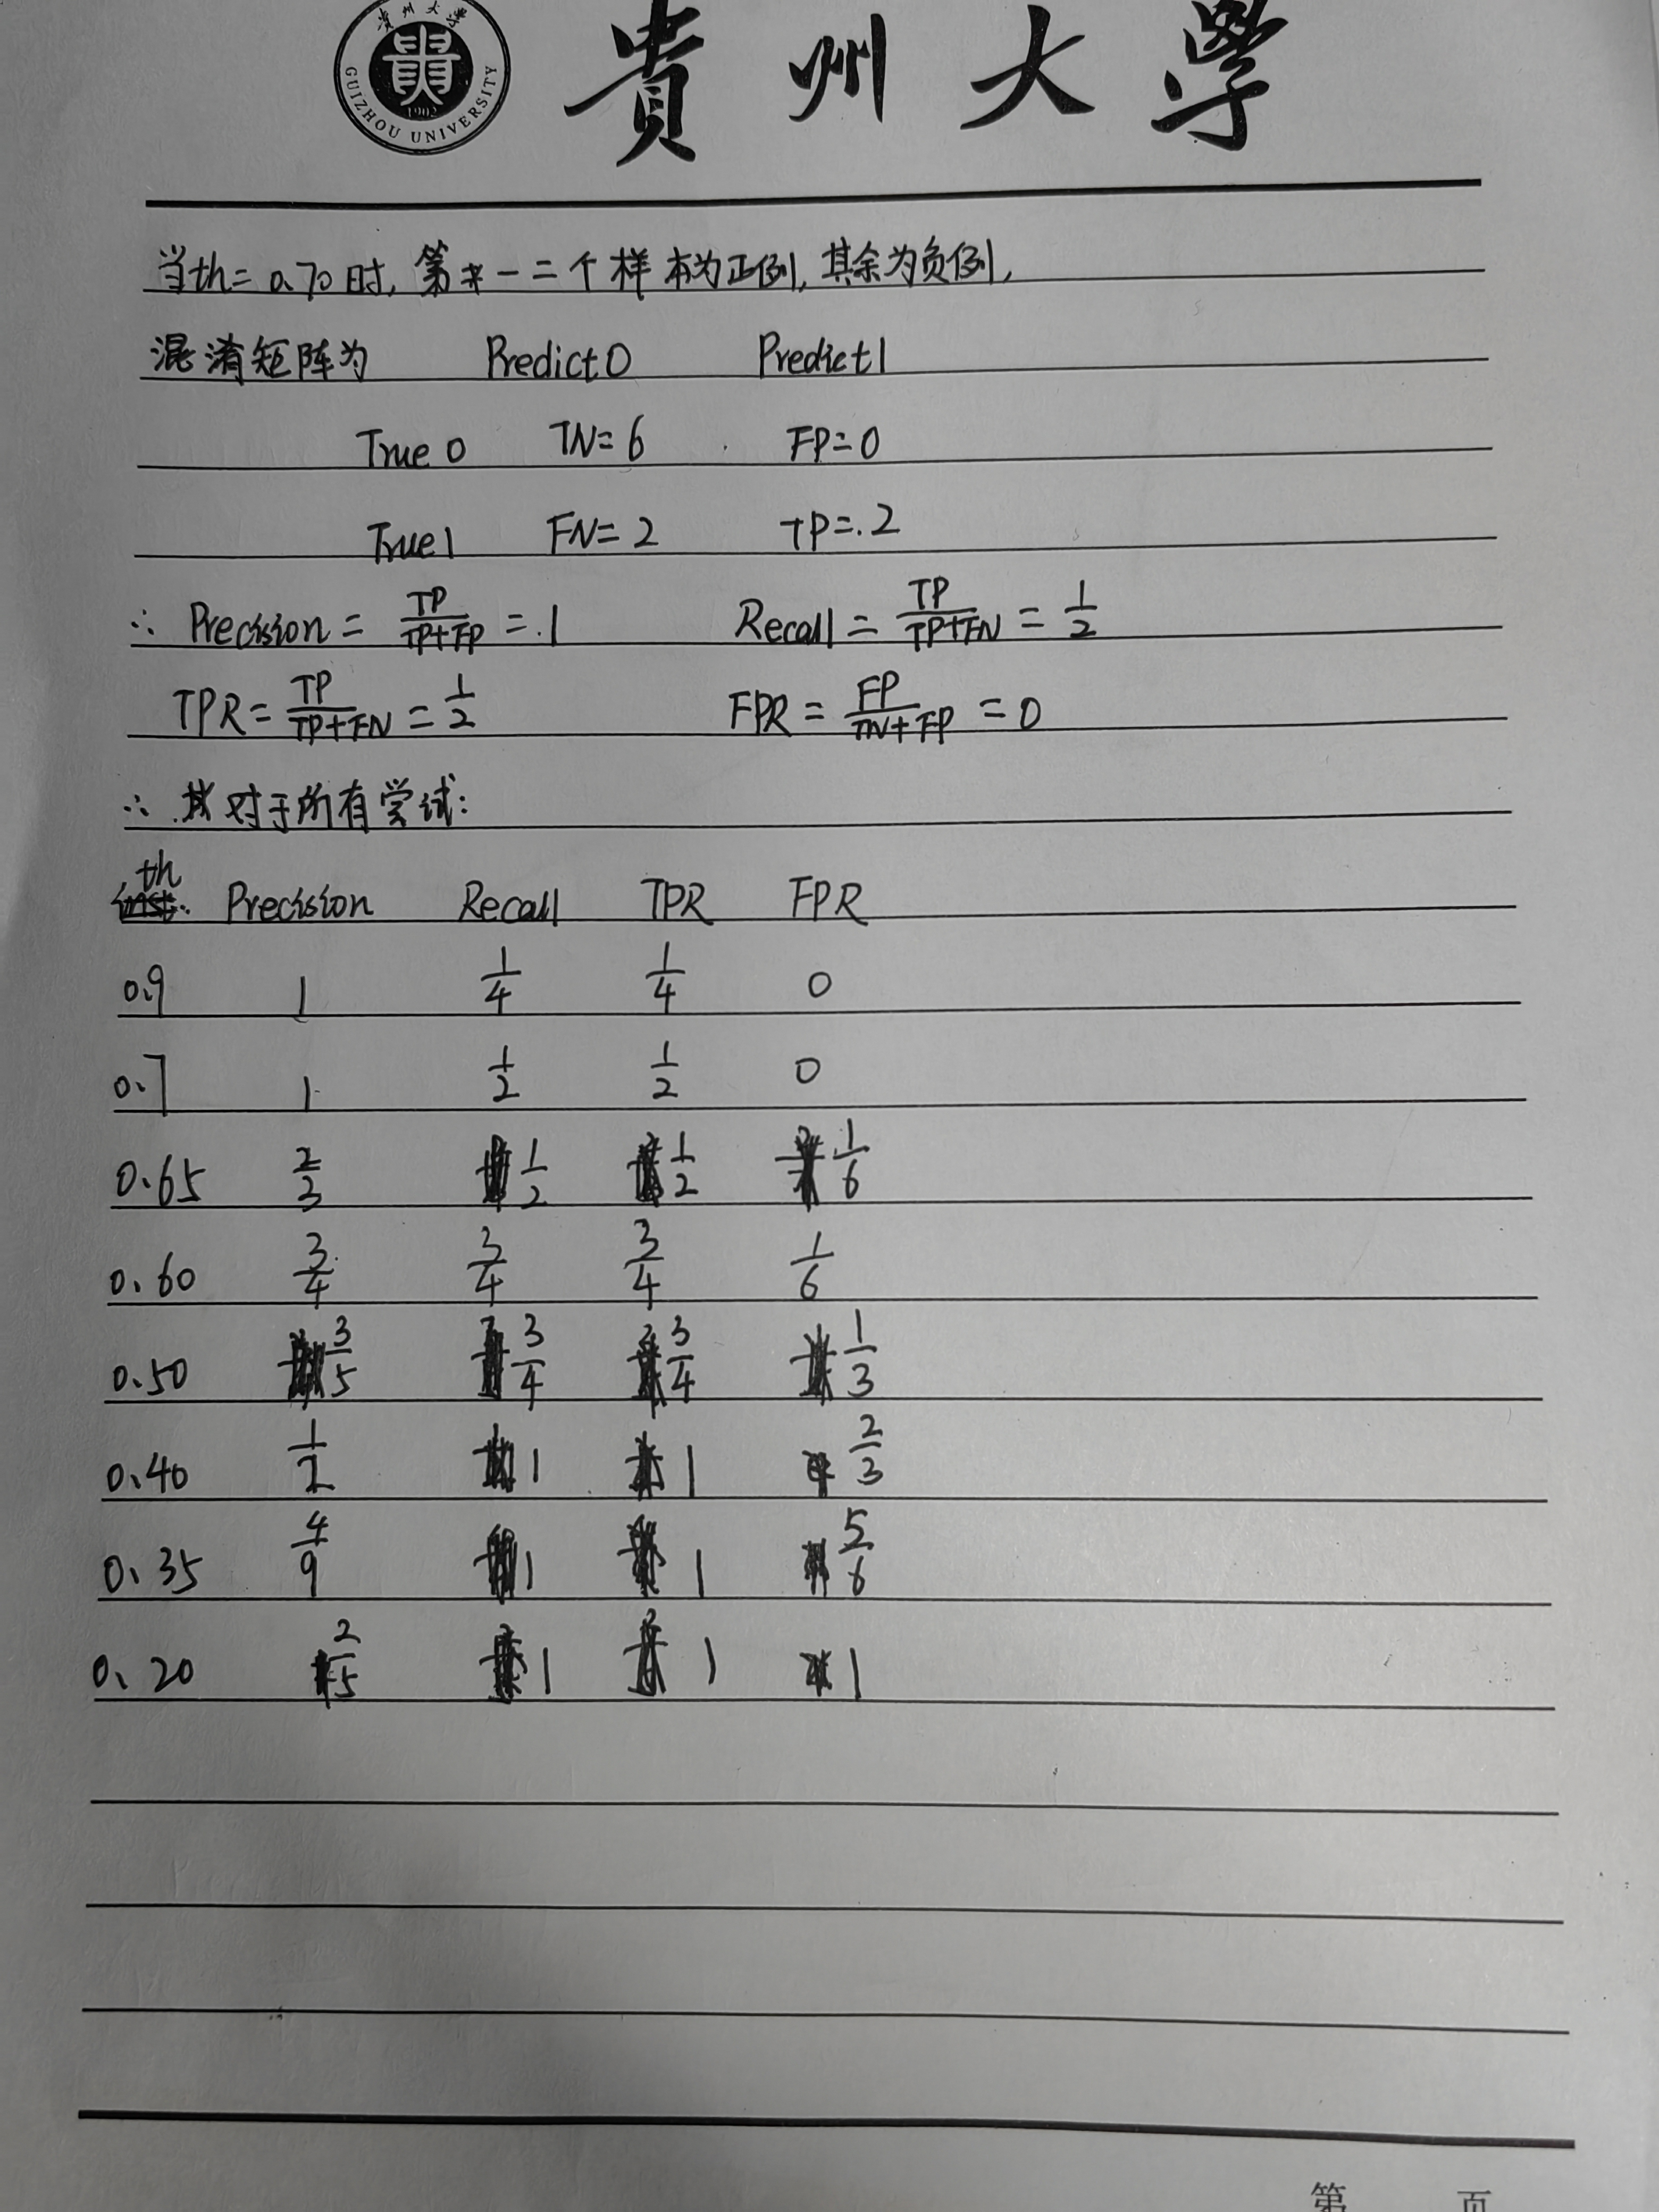 貴州大學
GUIZHOU UNIVERSITY
1902
貴州大學
当th=0.70时,第一二个样本为正例,其余为负例,
混淆矩阵为 Predict0 Predict1
True 0 TN=6 FP=0
True1 FN=2 TP=.2
∴ Precision = TP/(TP+FP) = .1 Recall = TP/(TP+FN) = 1/2
TPR = TP/(TP+FN) = 1/2 FPR = FP/(TN+FP) = 0
∴ 对于所有尝试:
th Precision Recall TPR FPR
0.9 1 1/4 1/4 0
0.7 1 1/2 1/2 0
0.65 2/3 1/2 1/2 1/6
0.60 3/4 3/4 3/4 1/6
0.50 3/5 3/4 3/4 1/3
0.40 1/2 1 1 2/3
0.35 4/9 1 1 5/6
0.20 2/5 1 1 1
第 页